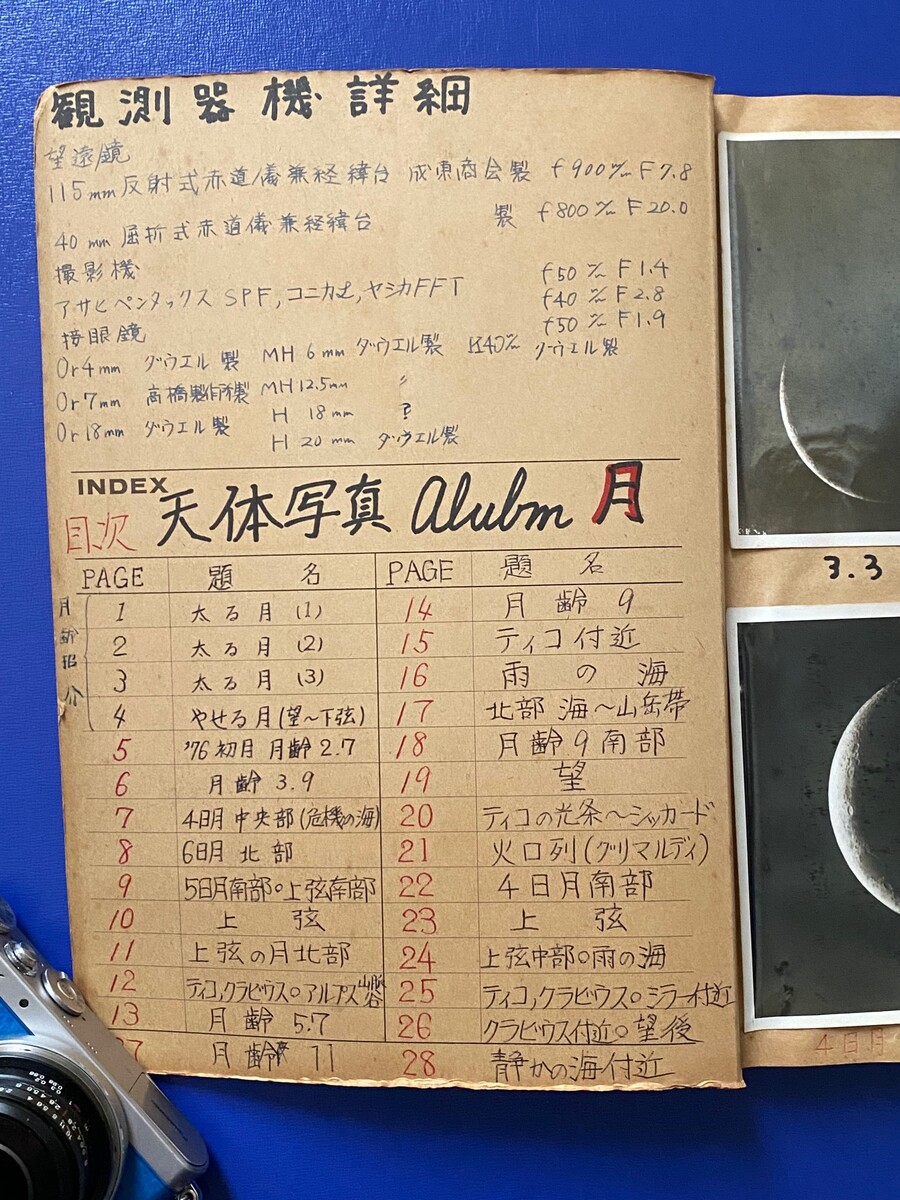 観測器機詳細
望遠鏡
115mm 反射式赤道儀兼経緯台 成東商会製 f900m/m F7.8
40mm 屈折式赤道儀兼経緯台 製 f800m/m F20.0
撮影機
アサヒペンタックス SPF, コニカ, ヤシカFFT
f50 m/m F1.4
f40 m/m F2.8
f50 m/m F1.9
接眼鏡
Or4mm ダウエル製 MH 6mm ダウエル製 K40m/m ダウエル製
Or7mm 高橋製作所製 MH 12.5mm 〃
Or18mm ダウエル製 H 18mm ?
H 20mm ダウエル製
INDEX
目次 天体写真 Alubm 月
PAGE 題名 PAGE 題名
月齢紹介
1 太る月 (1) 14 月齢 9
2 太る月 (2) 15 ティコ付近
3 太る月 (3) 16 雨の海
4 やせる月(望〜下弦) 17 北部 海〜山岳帯
5 '76 初月 月齢 2.7 18 月齢9南部
6 月齢 3.9 19 望
7 4日月 中央部(危機の海) 20 ティコの光条〜シッカード
8 6日月 北部 21 火口列(グリマルディ)
9 5日月南部○上弦南部 22 4日月南部
10 上弦 23 上弦
11 上弦の月北部 24 上弦中部○雨の海
12 ティコ,クラビウス○アルプス山脈谷 25 ティコ,クラビウス○ミラー付近
13 月齢 5.7 26 クラビウス付近○望後
27 月齢 11 28 静かの海付近
3.3
4日月